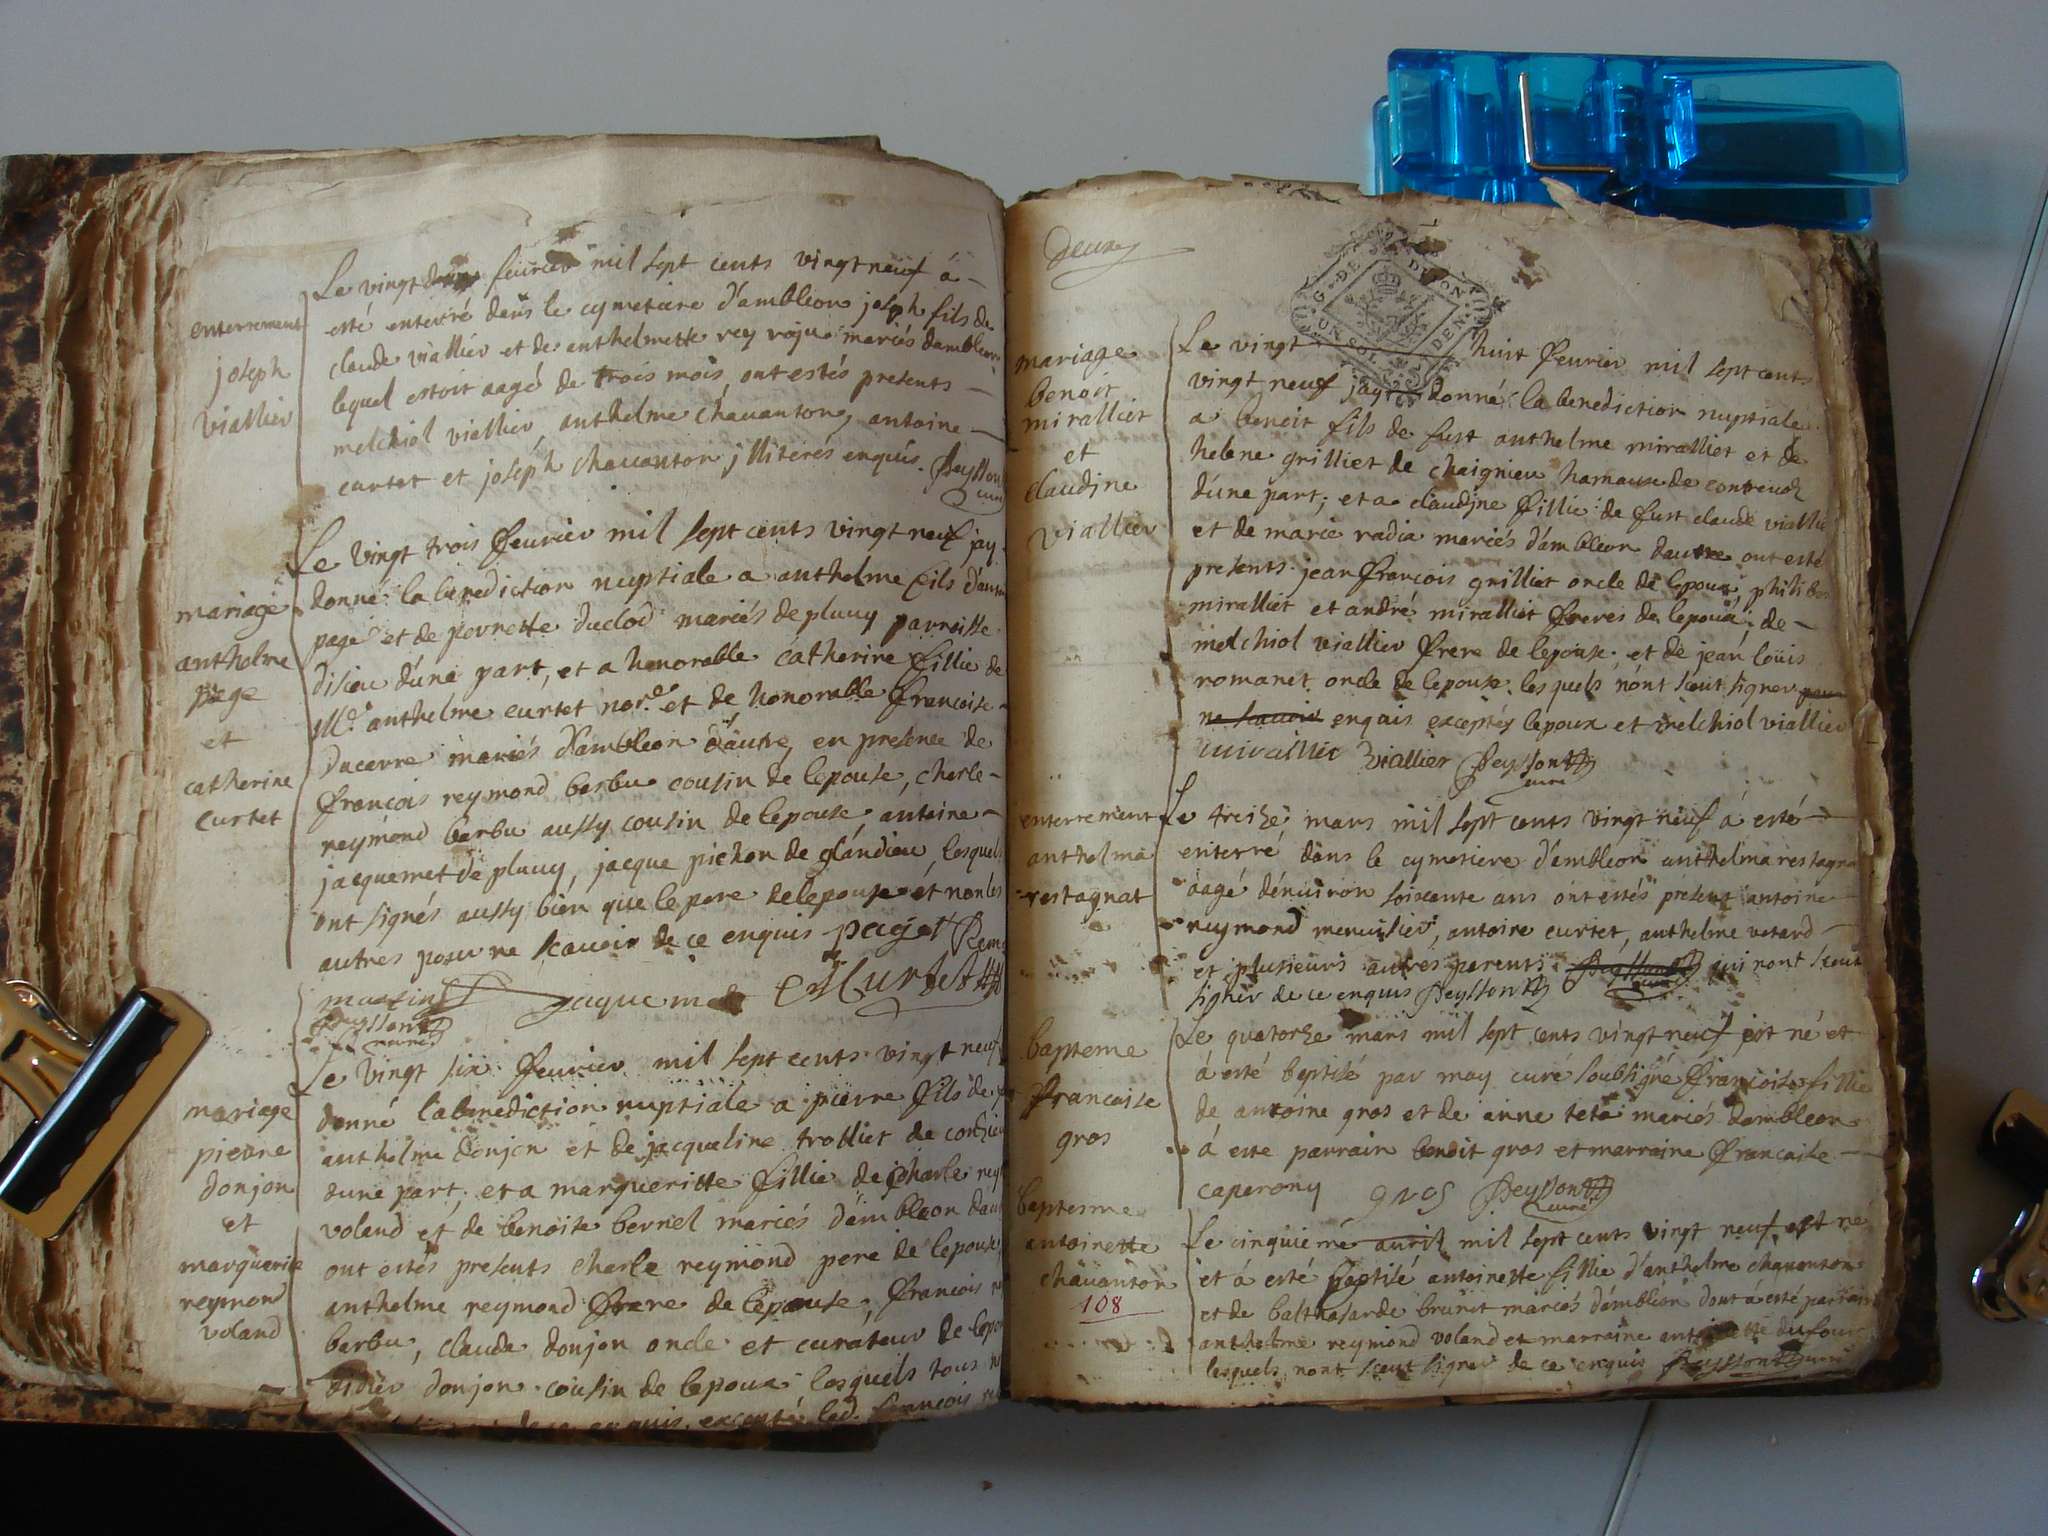 enterrement
joseph
viallier
Le vingt deux feurier mil sept cents vingt neuf à
esté enterré dans le cymetiere d'ambleon joseph fils de
claude viallier et de anthelmette rey mariés d'ambleon
lequel estoit aagé de trois mois, ont estés presents
melchiol viallier anthelme chauanton, antoine
curtet et joseph chauanton jlliterés enquis. Peysson
curé
mariage
anthelme
page
et
catherine
curtet
Le vingt trois feurier mil sept cents vingt neuf jay
donné la benediction nuptiale a anthelme fils d'
page et de pernette duclod mariés de pluuy parroisse
disieu d'une part, et a honorable catherine fillie de
Md. anthelme curtet nore. et de honorable francoise
ducerre mariés d'ambleon d'autre, en presence de
francois reymond barbu cousin de lepouse, charle
reymond barbu aussy cousin de lepouse antoine
jacquemet de pluuy, jacque pichon de glandieu, lesquels
ont signés aussy bien que le pere de lepouse et non les
autres pour ne scauoir de ce enquis paget
jaquemet Curtet
Peysson
curé
mariage
pierre
donjon
et
marguerite
reymond
voland
Le vingt six feurier mil sept cents vingt neuf
donné la benediction nuptiale a pierre fils de
anthelme donjon et de jacqueline trolliet de
dune part, et a margueritte fillie de charle rey
voland et de benoite bernel mariés d'ambleon dau
ont estés presents charle reymond pere de lepouse,
anthelme reymond frere de lepouse, francois
barbu, claude donjon oncle et curateur de lepou
didier donjon cousin de lepoux lesquels tous
enquis, excepté led. francois
deux
G. DE DIJON
UN SOL DEN
mariage
benoit
miralliet
et
claudine
viallier
Le vingt huit feurier mil sept cents
vingt neuf jay donné la benediction nuptiale
a benoit fils de fust anthelme miralliet et de
helene grilliet de chaignieu hameau de
d'une part, et a claudine fillie de fust claude viallie
et de marie radia mariés d'ambleon dautre ont esté
presents jean françois grilliet oncle de lepoux, philibe
miralliet et andré miralliet freres de lepoux, de
melchiol viallier frere de lepouse, et de jean louis
romanet oncle de lepouse lesquels nont sceut signer pour
ne scauoir enquis exceptés lepoux et melchiol viallier
miraillie viallier Peysson
curé
enterrement
anthelma
restagnat
Le treize mars mil sept cents vingt neuf à esté
enterré dans le cymetiere d'ambleon anthelma restagna
aagé dénuiron soixante ans ont estés present antoine
reymond menuisier, antoine curtet, anthelme
et plusieurs autres parents Peysson qui nont sceut
signer de ce enquis Peysson
bapteme
francoise
gros
Le quatorze mars mil sept cents vingt neuf est né et
à esté baptisé par moy curé soubsigné françoise fillie
de antoine gros et de anne teta mariés dambleon
à esté parrain benoit gros et marraine francoise
caperony gros Peysson
curé
baptesme
antoinette
chauanton
108
Le cinquiéme auril mil sept cents vingt neuf est né
et à esté baptisé antoinette fillie d'anthelme chauanton
et de balthasarde brunet mariés d'ambleon dont à esté parrain
anthelme reymond voland et marraine antoinette dufour
lesquels nont sceut signer de ce enquis Peysson curé